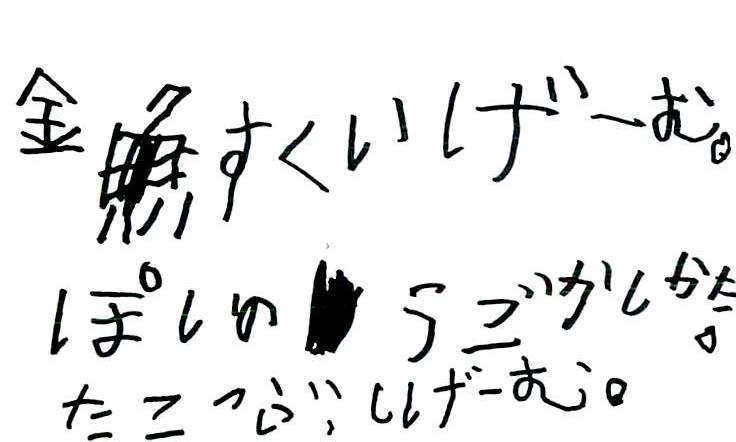 金魚すくいげーむ。
ぽしのうごかしかた。
たこつぶしげーむ。